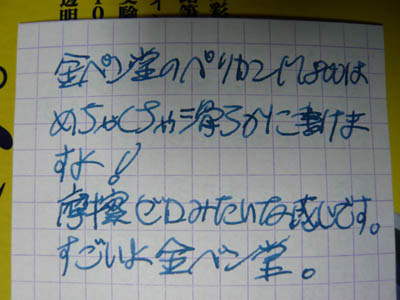 金ペン堂のペリカンM800は
めちゃくちゃ滑らかに書けま
すよ!
摩擦ゼロみたいな感じです。
すごいよ金ペン堂。